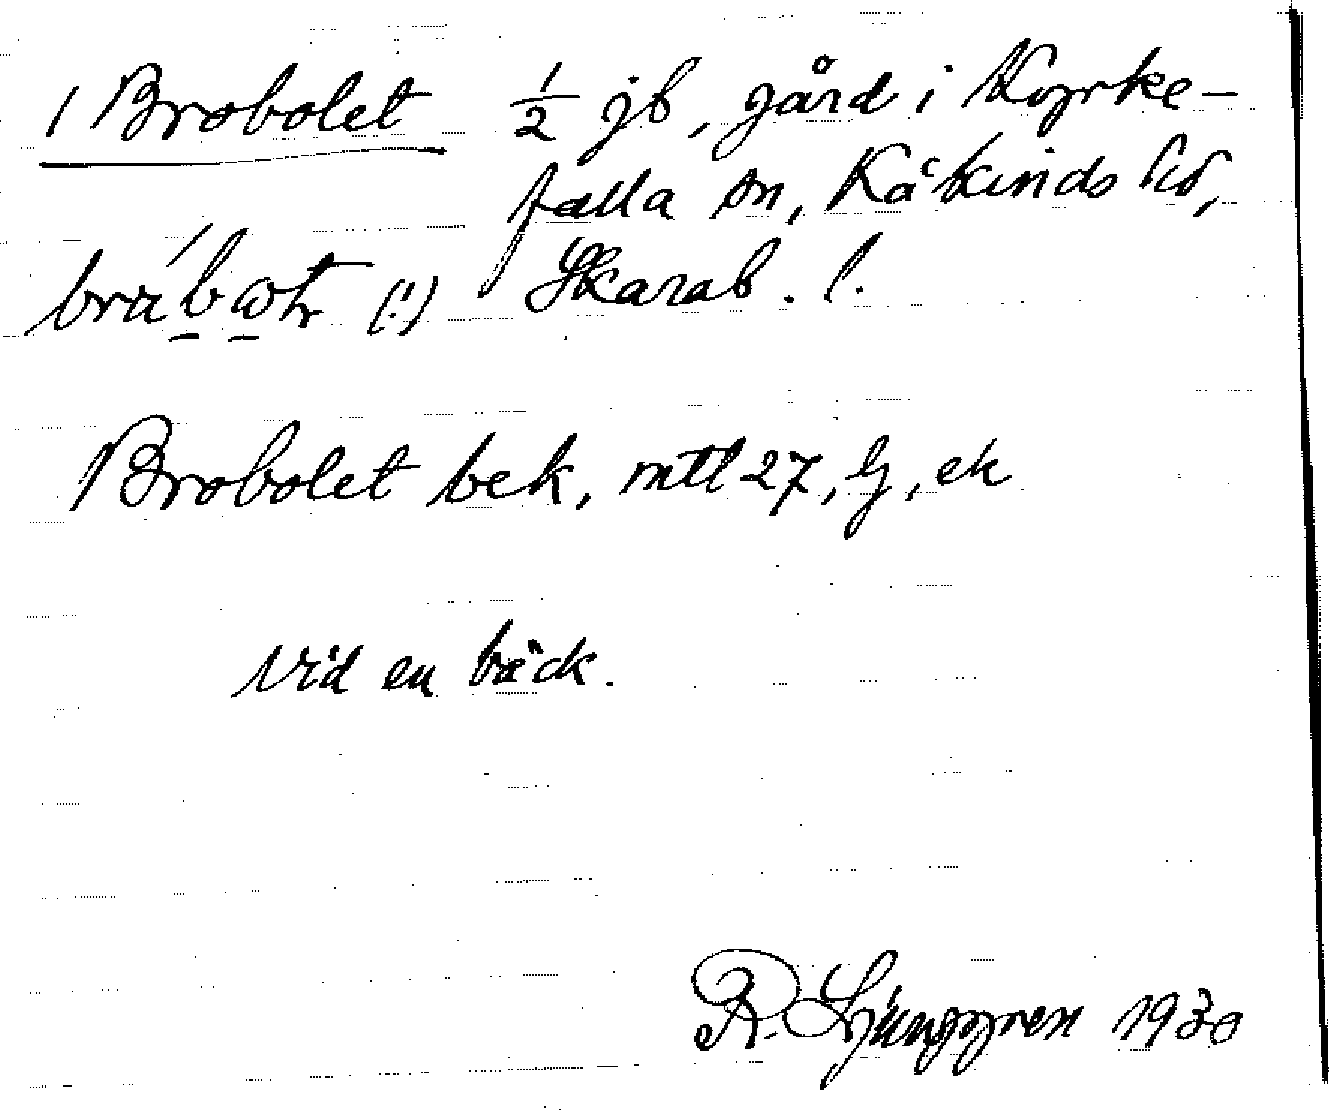 1 Brobolet ½ jb, gård i Kyrke-
falla sn, Kåkinds hd,
Skarab. l.
(!)
Brobolet bek, mtl 27, lj, ek
Vid en bäck.
R. Ljunggren 1930